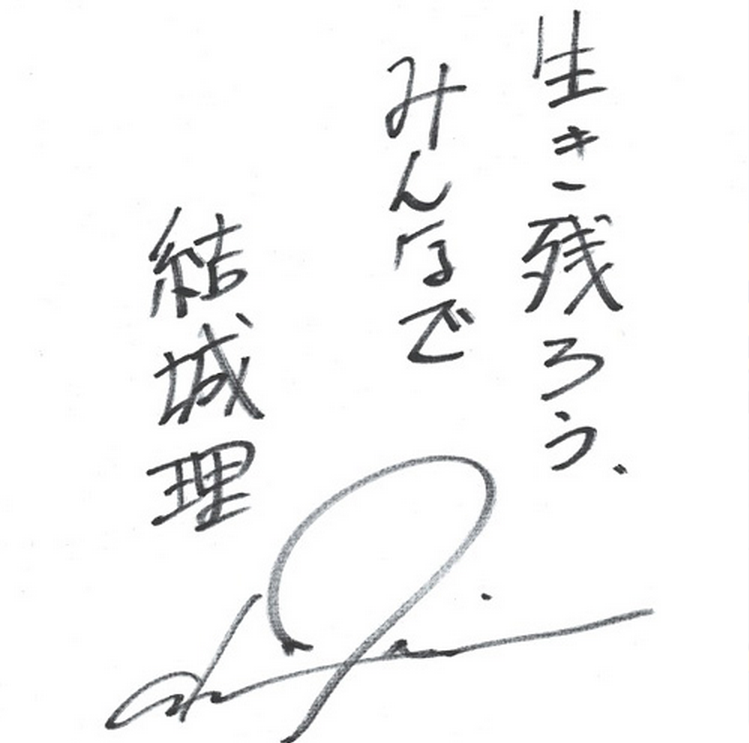 生き残ろう、
みんなで
結城理